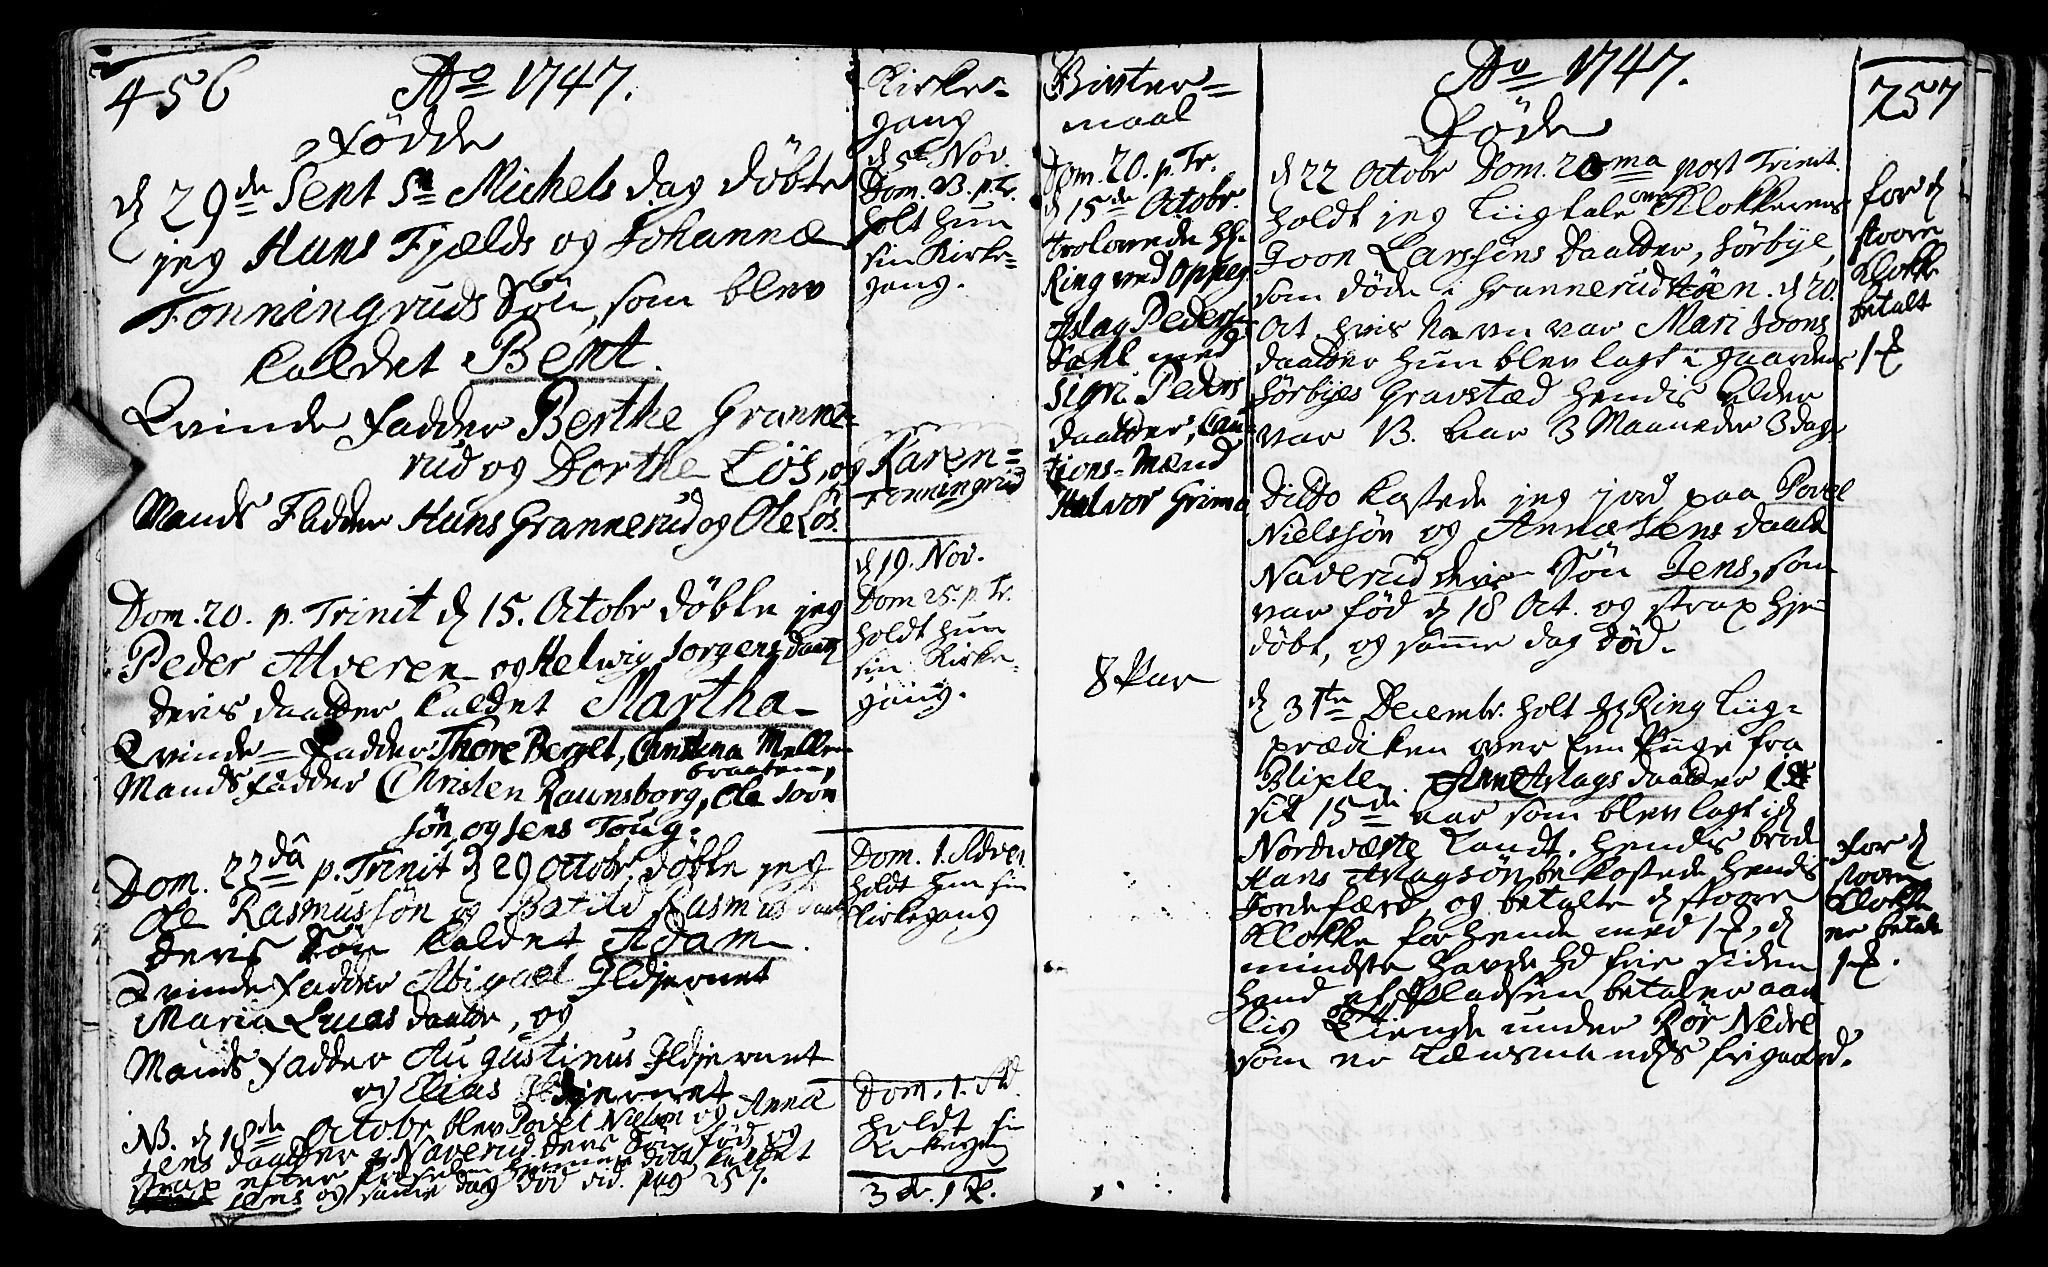 456
Ao 1747.
Födde
d 29de Sept St Michels dag döbte
jeg Hans Fjælds og Johannæ
Tonningruds Sön, som blev
kaldet Bent.
Qvinde Fadder Berthe Granne-
rud og Dorthe Lös, og Karen
Tonningrud
Mands Fadder Hans Grannerud og Ole Lös.
Dom. 20. p. Trinit d 15. Octobr döbte jeg
Peder Alveren og Helwig Jorgens daatt
deris daatter kaldet Martha
Qvinde-Fadder Thore Berget, Christina Mellem
braaten,
Mands fadder Christen Raunsborg, Ole Joon
sön og Jens Toug.
Dom. 22da p. Trinit d 29 Octobr. döbte jeg
Ole Rasmussön og Batild Rasmus daat
deris Sön kaldet Adam.
Qvinde Fadder Abigael Ildjernet
Maria Lucas daatter, og
Mands Fadder Augustinus Ildjernet
og Elias Ildjernet
NB. d 18de Octobr blev Povel Nielsön og Annæ
Jens daatter Naverud deris Sön föd og
strax efter hiemme döbt kaldet
Jens og samme dag död vid. pag 257.
Kirke-
gang
d 5te Nov.
Dom. 23. p. Tr.
holt hun
sin Kirke-
gang.
d 19. Nov.
Dom 25. p. Tr.
holdt hun
sin Kirke-
gang.
Dom. 1. Adven
holdt hun sin
Kirkegang
Dom. 1. Ad.
holdt sin
Kirkegang
Bivter-
maal
Dom. 20. p. Tr.
d 15de Octobr.
trolovede Hr.
Ring ved Oppeg
Aslag Peders
Dahl med
Sigri Peders
daatter, Cau-
tions-Mænd
Halvor Grimo
8 Par
Ao 1747.
Döde
757
d 22 Octobr Dom. 20ma post Trinit.
holdt jeg Liigtale over Klokkerens
Joon Larssöns Daatter, Sörbye,
som döde i Grannerudstöen. d 20.
Oct hvis Navn var Mari Joons
daatter hun blev lagt i gaardens
Sörbyes Gravstæd hendis alder
var 13. Aar 3 Maaneder 3 dage
Ditto kastede jeg jord paa Povel
Nielssön og Annæ Jens daatt
Naverud deris Sön Jens, som
var föd d 18 Oct. og strax hje
döbt, og samme dag död.
d 3te Decembr. holt Hr Ring Liig-
prædiken over en Piige fra
Blixle. Anne Aslags daatter i
sit 15de aar som blev lagt i d
Nordvæste kandt. hendis brod
Hans Aslagsön bekostede hendis
Jordefærd, og betalte d stoore
Klokke for hende med 1 , d
mindste havde hd frie siden
hand af Pladsen betaler aar
lig Tiende under Rör Nedre
som er Lænsmandens frigaard.
for d
stoore
Klokke
betalt
for d
stoore
Klokke
er betalt